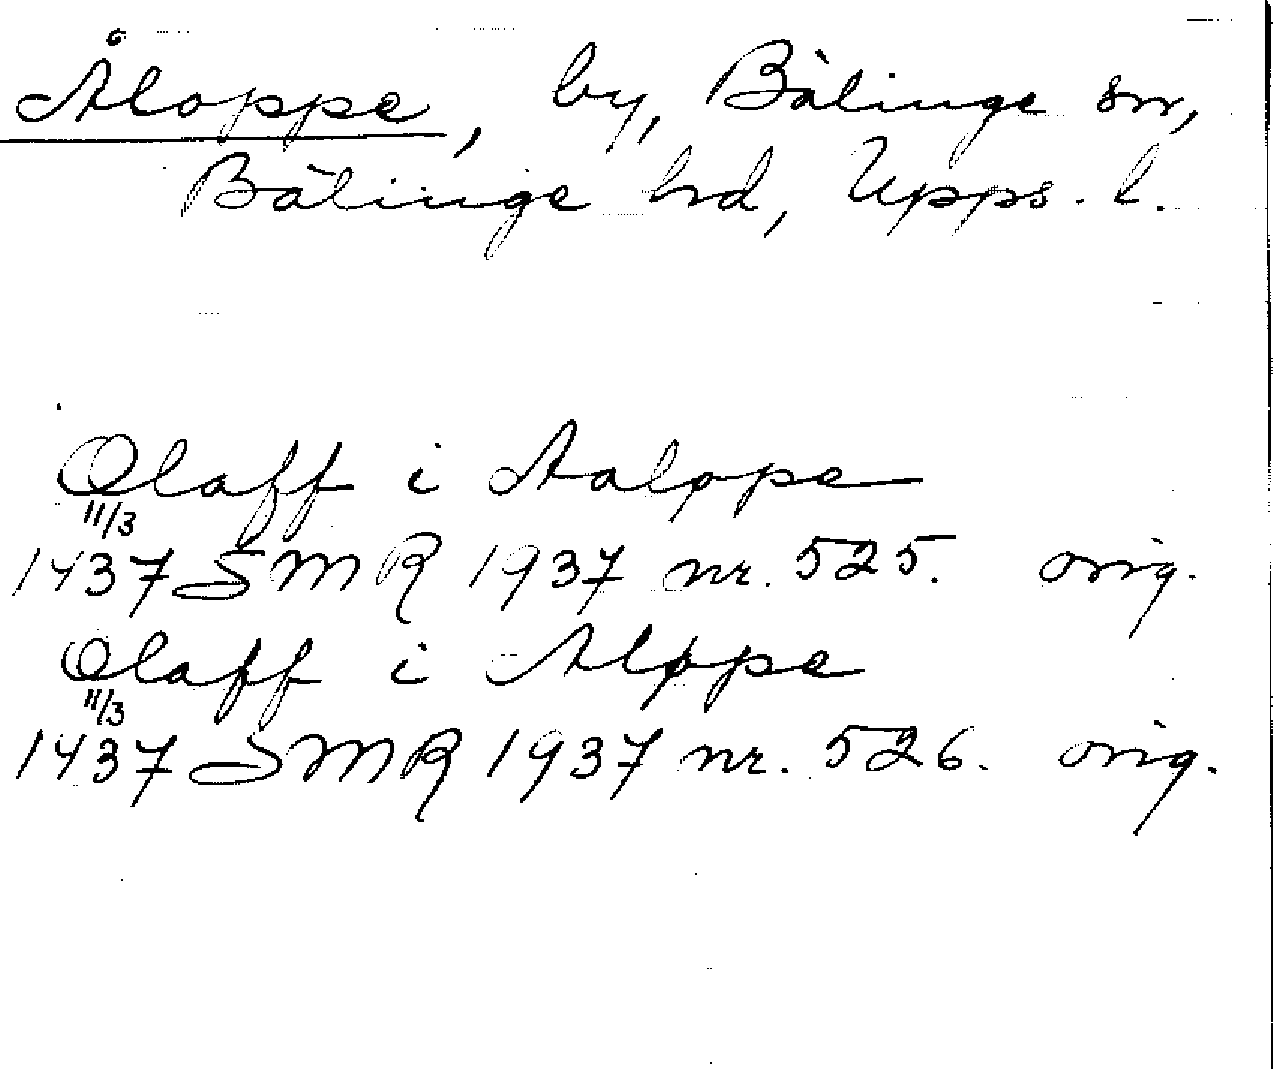 Åloppe, by, Bälinge sn,
Bälinge hd, Upps. l.
Olaff i Aaløpe
11/3
1437 SMR 1937 nr. 525. orig.
Olaff i Aløppe
11/3
1437 SMR 1937 nr. 526. orig.